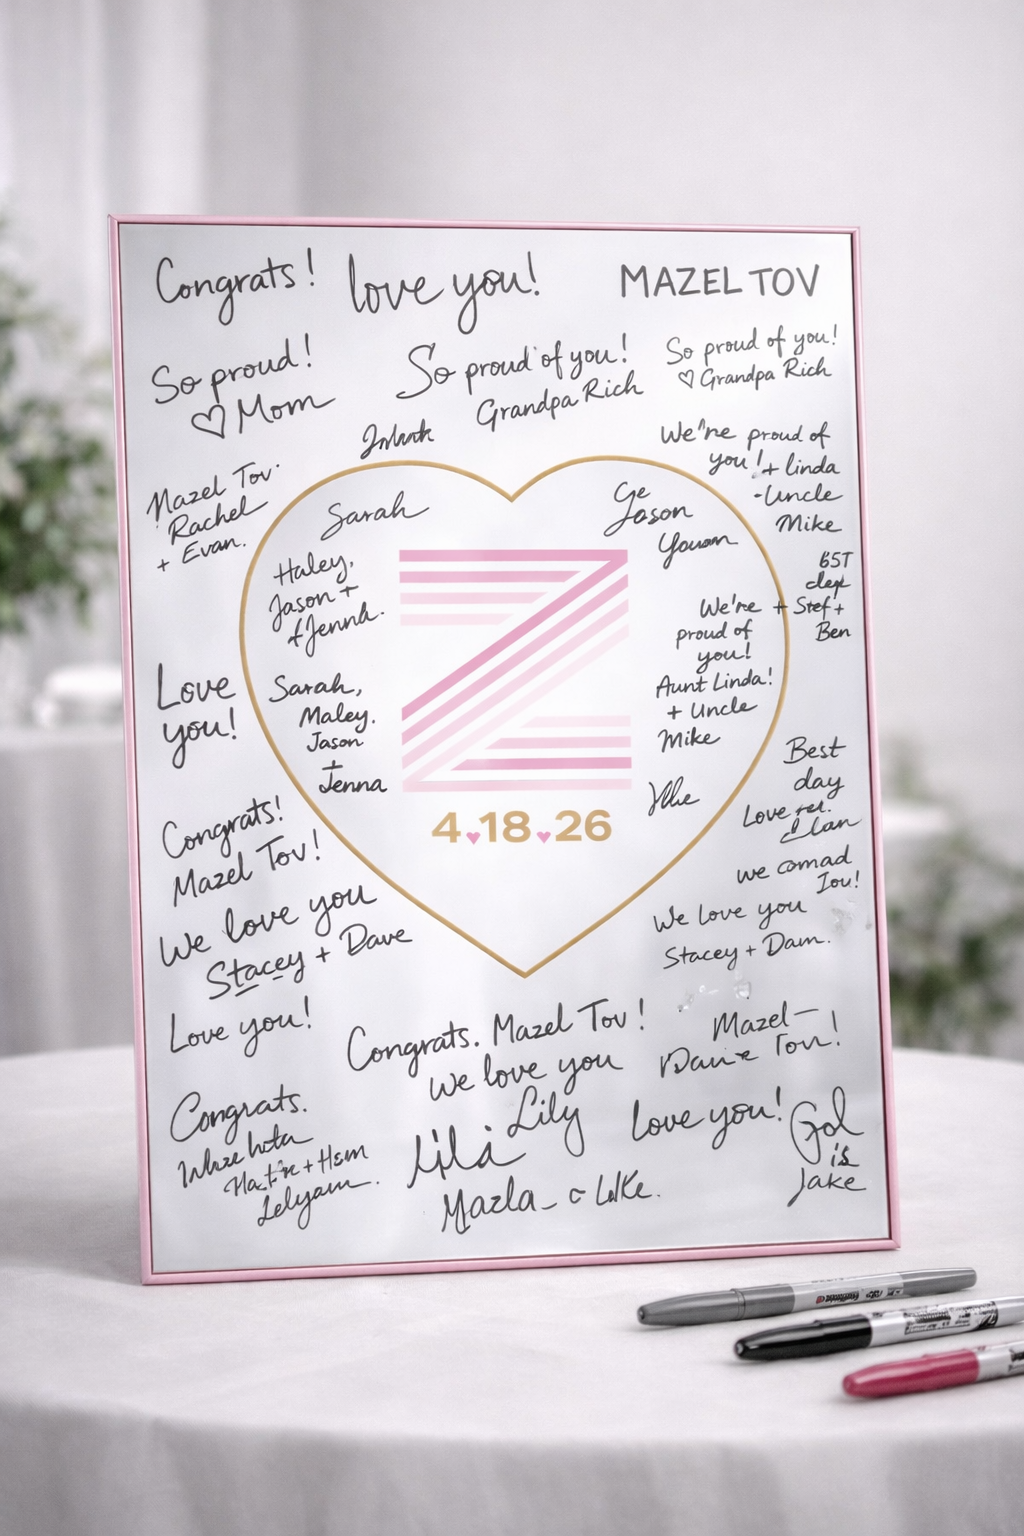 Congrats!
love you!
MAZEL TOV
So proud!
♡ Mom
So proud of you!
Grandpa Rich
So proud of you!
♡ Grandpa Rich
We're proud of
you! + linda
-Uncle
Mike
Mazel Tov.
Rachel
+ Evan.
Sarah
Jason
Haley,
Jason +
+ Jenna.
BST
+ Stef +
Ben
We're
proud of
you!
Aunt Linda!
+ Uncle
Mike
Love
you!
Sarah,
Maley.
Jason
+
Jenna
Z
4♥18♥26
Best
day
Love
Congrats!
Mazel Tov!
We love you
Stacey + Dave
we
We love you
Stacey + Dam.
Love you!
Congrats. Mazel Tov!
We love you
Lily
Mazel—
Love you!
Congrats.
is
Jake